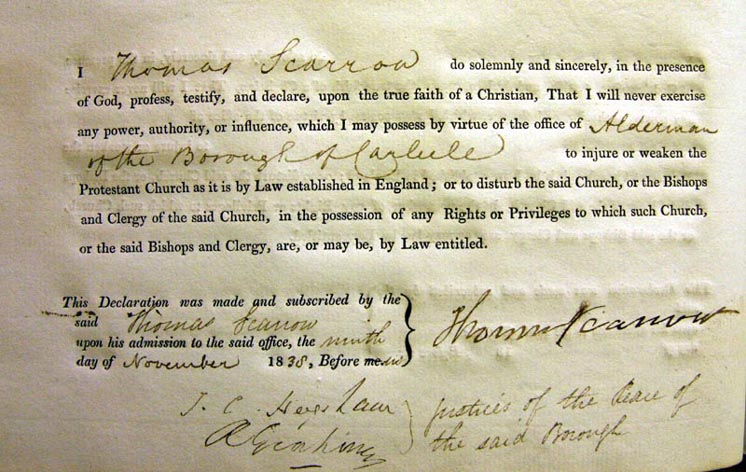 I Thomas Scarrow do solemnly and sincerely, in the presence
of God, profess, testify, and declare, upon the true faith of a Christian, That I will never exercise
any power, authority, or influence, which I may possess by virtue of the office of Alderman
of the Borough of Carlisle to injure or weaken the
Protestant Church as it is by Law established in England; or to disturb the said Church, or the Bishops
and Clergy of the said Church, in the possession of any Rights or Privileges to which such Church,
or the said Bishops and Clergy, are, or may be, by Law entitled.
This Declaration was made and subscribed by the
said Thomas Scarrow
upon his admission to the said office, the ninth
day of November 1838, Before me us
Thomas Scarrow
T. C. Heysham
Justices of the Peace of
the said Borough